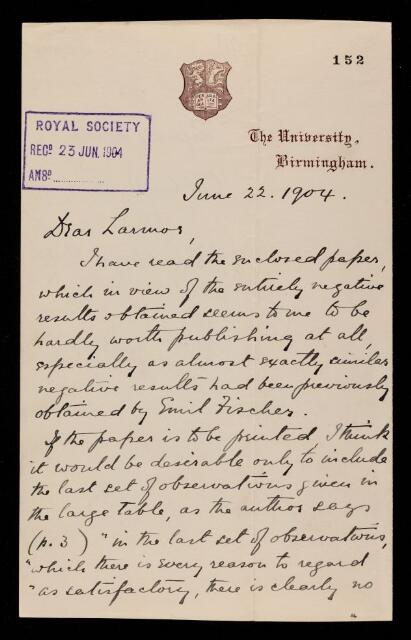 152
ROYAL SOCIETY
RECD 23 JUN. 1904
ANSD
The University,
Birmingham.
June 22. 1904.
Dear Larmor,
I have read the enclosed paper,
which in view of the entirely negative
results obtained seems to me to be
hardly worth publishing at all,
especially as almost exactly similar
negative results had been previously
obtained by Emil Fischer.
If the paper is to be printed, I think
it would be desirable only to include
the last set of observations given in
the large table, as the author says
(p. 3) "in the last set of observations,
"which there is every reason to regard
"as satisfactory, there is clearly no